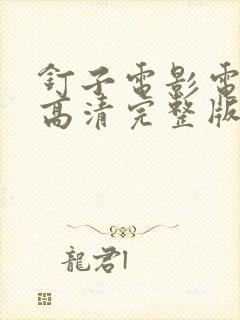 釘子電影電
高清完整版
龍君l